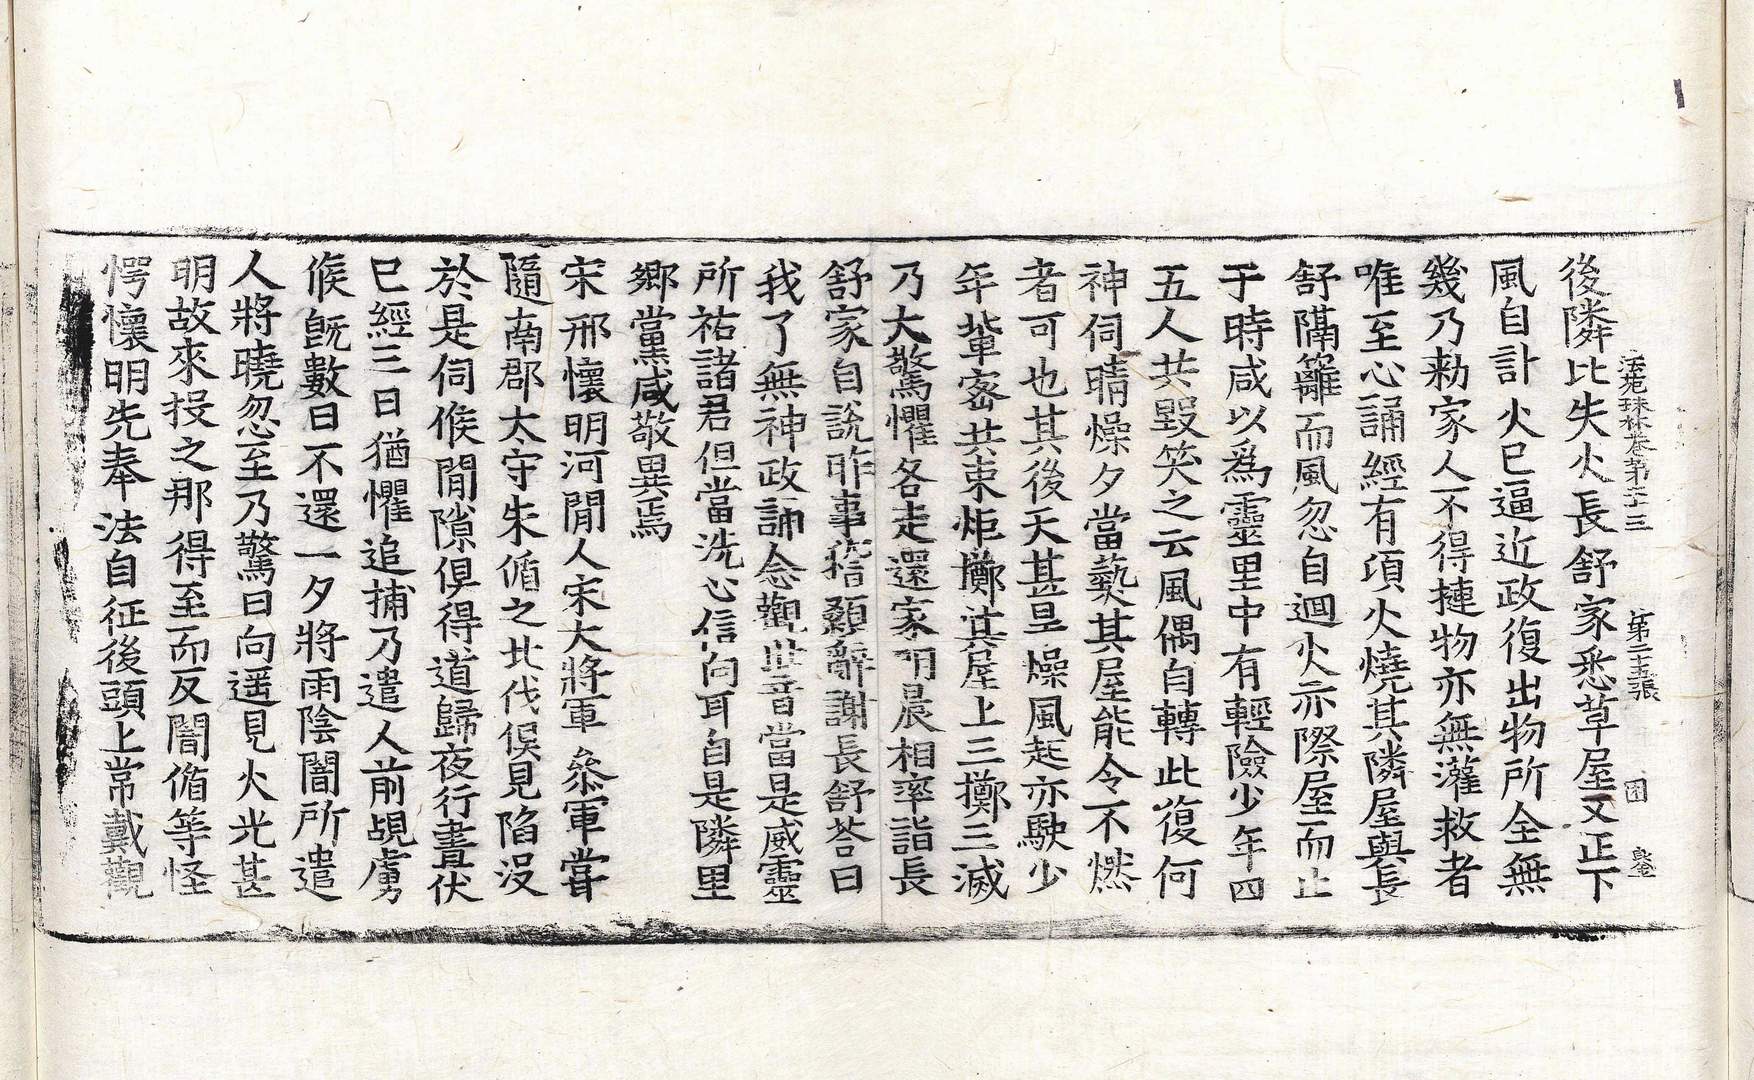 法苑珠林卷第二十三 第二十五張 困
後隣比失火長舒家悉草屋又正下
風自計火已逼近政復出物所全無
幾乃勑家人不得摙物亦無灌救者
唯至心誦經有頃火燒其隣屋與長
舒隔籬而風忽自迴火亦際屋而止
于時咸以爲靈里中有輕險少年四
五人共毀笑之云風偶自轉此復何
神伺晴燥夕當爇其屋能令不燃
者可也其後天甚旱燥風起亦駛少
年輩密共束炬擲其屋上三擲三滅
乃大驚懼各走還家明晨相率詣長
舒家自說昨事稽顙辭謝長舒荅曰
我了無神政誦念觀世音當是威靈
所祐諸君但當洗心信向耳自是隣里
鄉黨咸敬異焉
宋邢懷明河閒人宋大將軍叅軍甞
隨南郡太守朱循之北伐俱見陷沒
於是伺候閒隙俱得遁歸夜行晝伏
已經三日猶懼追捕乃遣人前覘虜
候旣數日不還一夕將雨陰闇所遣
人將曉忽至乃驚曰向遥見火光甚
明故來投之那得至而反闇循等怪
愕懷明先奉法自征後頭上常戴觀